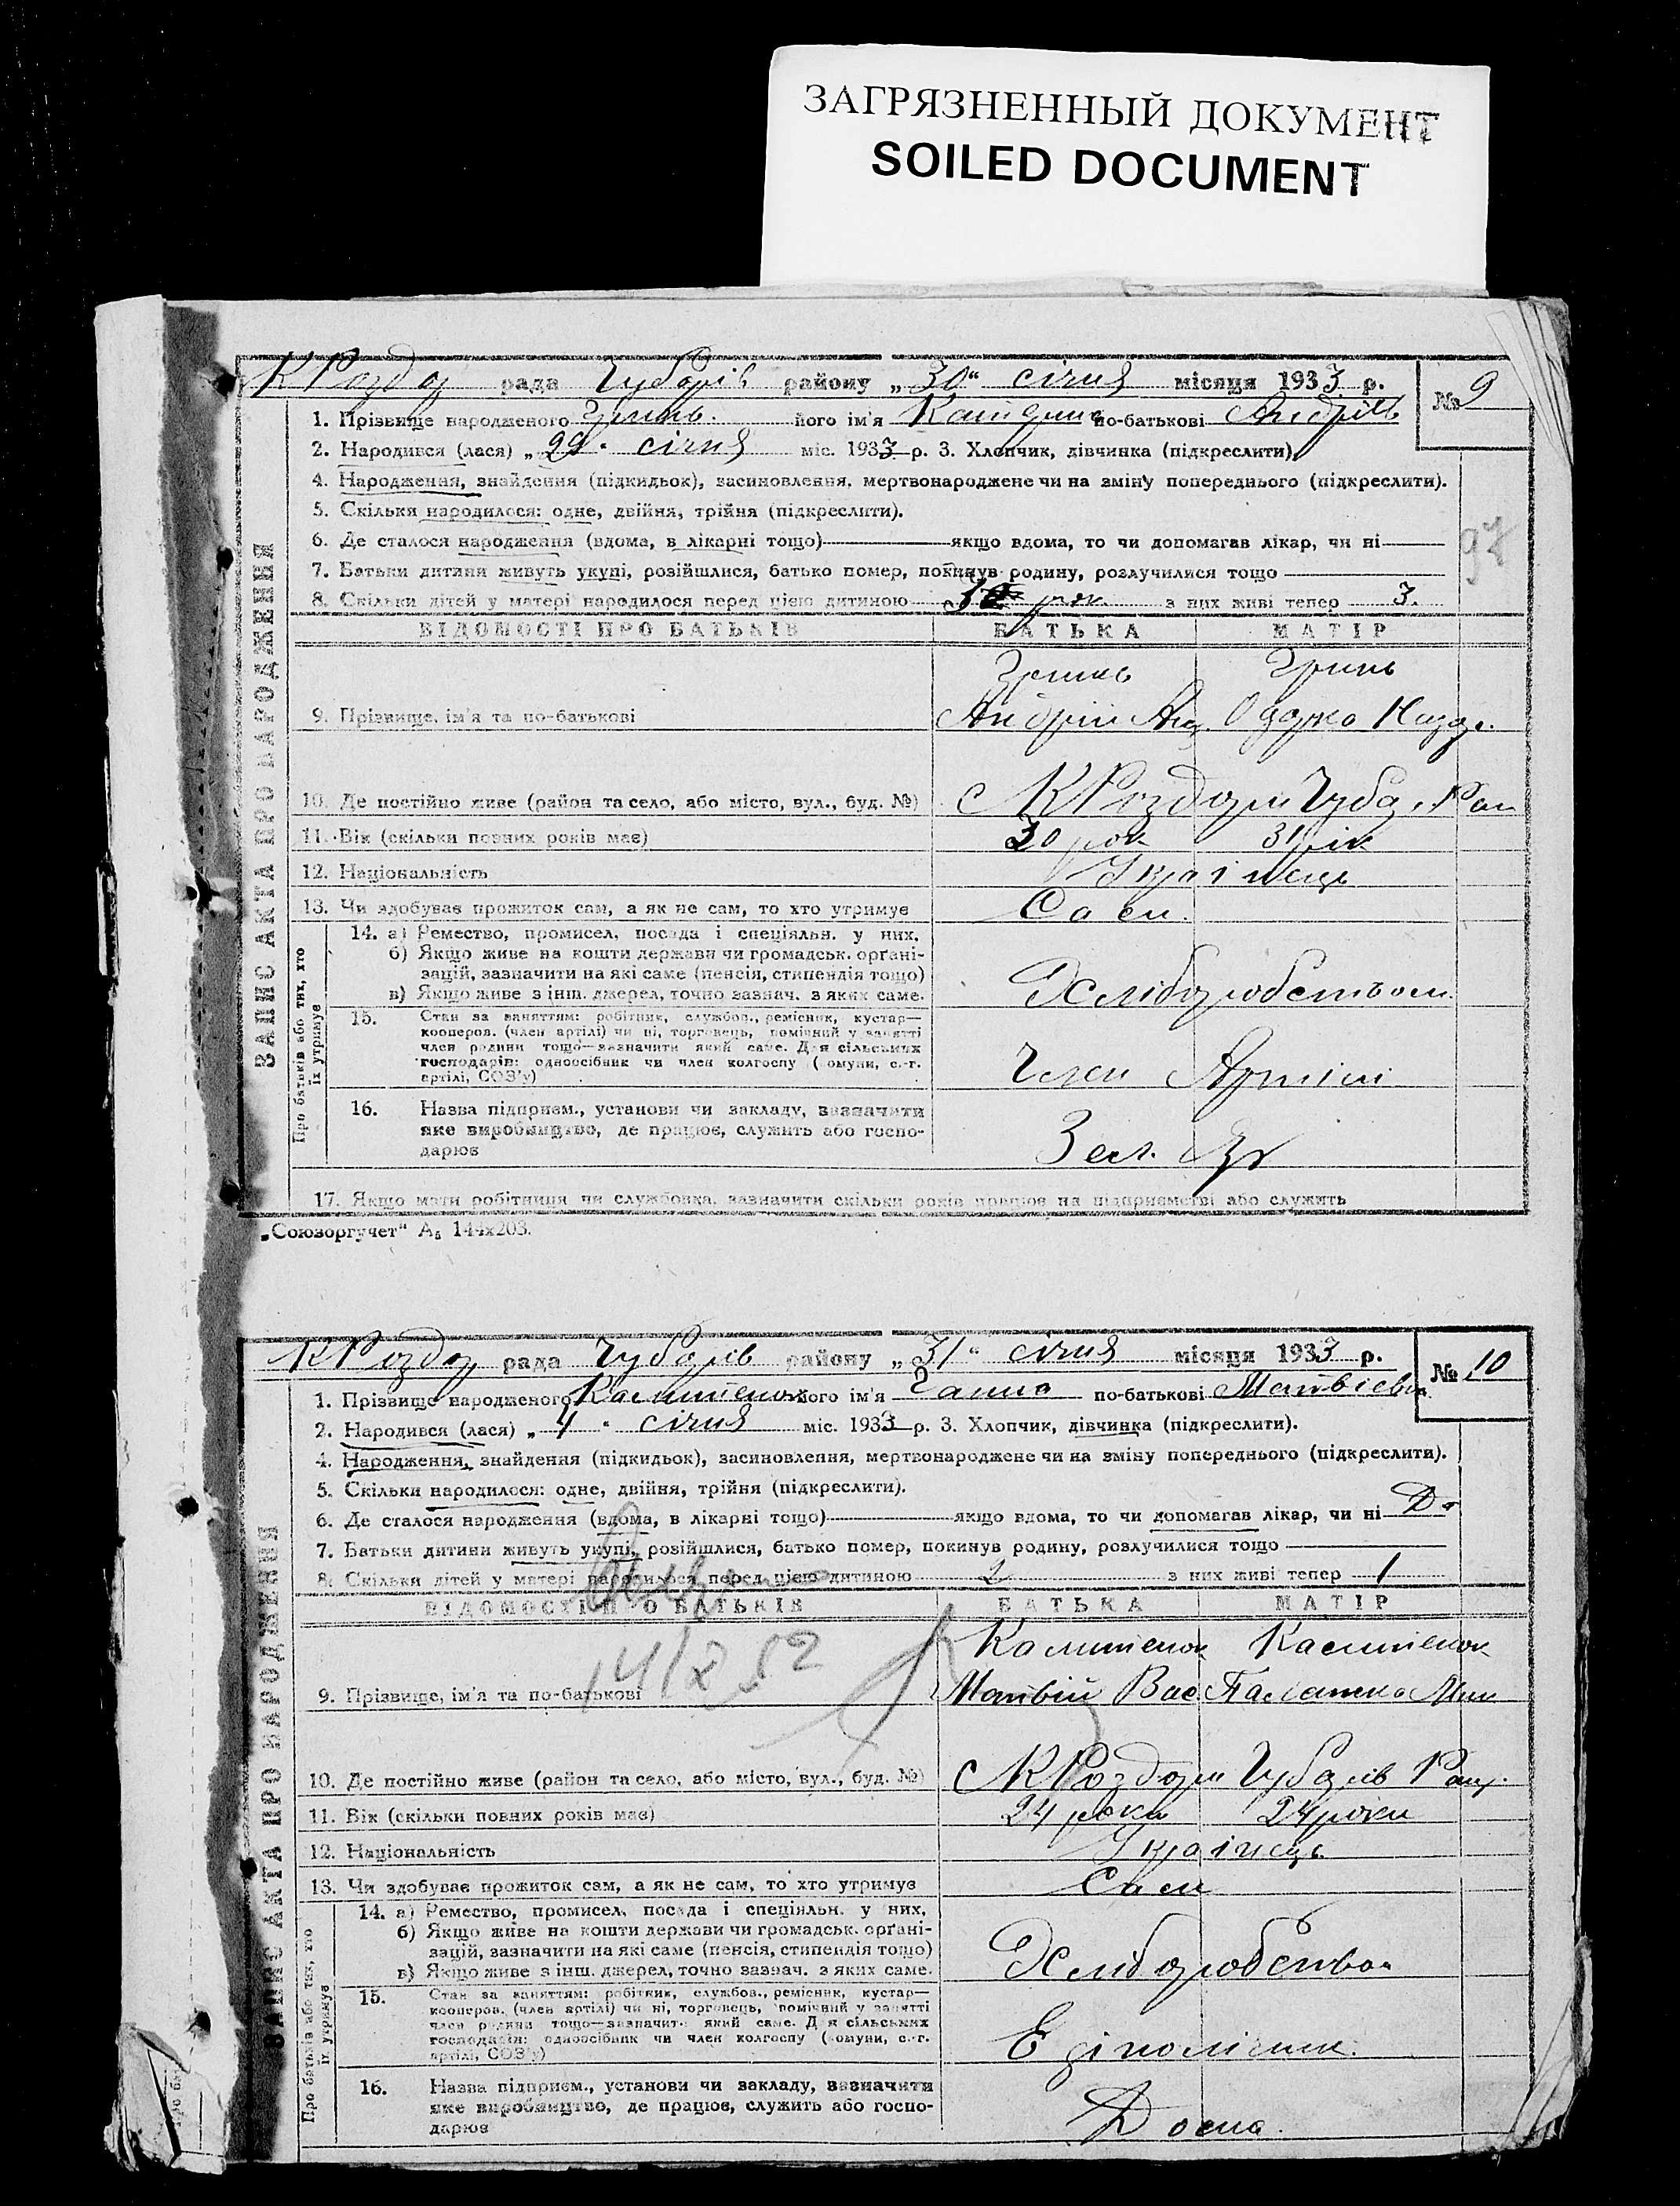 ЗАГРЯЗНЕННЫЙ ДОКУМЕНТ
SOILED DOCUMENT
К Роздор рада Чубарів району „30“ січня місяця 1933 р. № 9
1. Прізвище народженого Гринь його ім'я Катерина по-батькові Андріїв
2. Народився (лася) „29“ січня міс. 1933 р. 3. Хлопчик, дівчинка (підкреслити)
4. Народження, знайдення (підкидьок), засиновлення, мертвонароджене чи на зміну попереднього (підкреслити).
5. Скільки народилося: одне, двійня, трійня (підкреслити).
6. Де сталося народження (вдома, в лікарні тощо) якщо вдома, то чи допомагав лікар, чи ні
7. Батьки дитини живуть укупі, розійшлися, батько помер, покинув родину, розлучилися тощо
97
8. Скільки дітей у матері народилося перед цією дитиною з них живі тепер 3.
ВІДОМОСТІ ПРО БАТЬКІВ БАТЬКА МАТІР
Гринь Гринь
9. Прізвище, ім'я та по-батькові Андрій Анд. Одарка
10. Де постійно живе (район та село, або місто, вул., буд. №) с К Роздори Чубар. Рай
11. Вік (скільки повних років має) 30 рок 31 рік
12. Національність Українець
13. Чи здобуває прожиток сам, а як не сам, то хто утримує Сам.
14. а) Ремество, промисел, посада і спеціяльн. у них.
б) Якщо живе на кошти держави чи громадськ. орґані-
зацій, зазначити на які саме (пенсія, стипендія тощо)
в) Якщо живе з інш. джерел, точно зазнач. з яких саме.
Хліборобством.
15. Стан за заняттям: робітник, службов., ремісник, кустар—
кооперов. (член артілі) чи ні, торговець, помічний у занятті
член родини тощо—зазначити який саме. Для сільських
господарів: одноосібник чи член колгоспу (комуни, с.-г.
артілі, СОЗ'у)
Член Артілі
16. Назва підприєм., установи чи закладу, зазначити
яке виробництво, де працює, служить або госпо-
дарює
17. Якщо мати робітниця чи службовка, зазначити скільки років працює на підприємстві або служить
ЗАПИС АКТА ПРО НАРОДЖЕННЯ
Про батьків або тих, хто
їх утримує
„Союзоргучет“ А₅ 144х203.
К Роздор рада Чубарів району „31“ січня місяця 1933 р. № 10
1. Прізвище народженого його ім'я Ганна по-батькові Матвієвна
2. Народився (лася) „4“ січня міс. 1933 р. 3. Хлопчик, дівчинка (підкреслити).
4. Народження, знайдення (підкидьок), засиновлення, мертвонароджене чи на зміну попереднього (підкреслити).
5. Скільки народилося: одне, двійня, трійня (підкреслити).
6. Де сталося народження (вдома, в лікарні тощо) якщо вдома, то чи допомагав лікар, чи ні
7. Батьки дитини живуть укупі, розійшлися, батько помер, покинув родину, розлучилися тощо
8. Скільки дітей у матері народилося перед цією дитиною 2 з них живі тепер 1
ВІДОМОСТІ ПРО БАТЬКІВ БАТЬКА МАТІР
14/X 52
9. Прізвище, ім'я та по-батькові Матвій Вас. Палажка Мик
10. Де постійно живе (район та село, або місто, вул., буд. №) с К Роздори Чубарів Рай.
11. Вік (скільки повних років має) 24 роки 24 роки
12. Національність Українець
13. Чи здобуває прожиток сам, а як не сам, то хто утримує Сам
14. а) Ремество, промисел, посада і спеціяльн. у них.
б) Якщо живе на кошти держави чи громадськ. орґані-
зацій, зазначити на які саме (пенсія, стипендія тощо)
в) Якщо живе з інш. джерел, точно зазнач. з яких саме.
Хліборобством
15. Стан за заняттям: робітник, службов., ремісник, кустар—
кооперов. (член артілі) чи ні, торговець, помічний у занятті
член родини тощо—зазначити який саме. Для сільських
господарів: одноосібник чи член колгоспу (комуни, с.-г.
артілі, СОЗ'у)
16. Назва підприєм., установи чи закладу, зазначити
яке виробництво, де працює, служить або госпо-
дарює
Дома.
ЗАПИС АКТА ПРО НАРОДЖЕННЯ
Про батьків або тих, хто
їх утримує